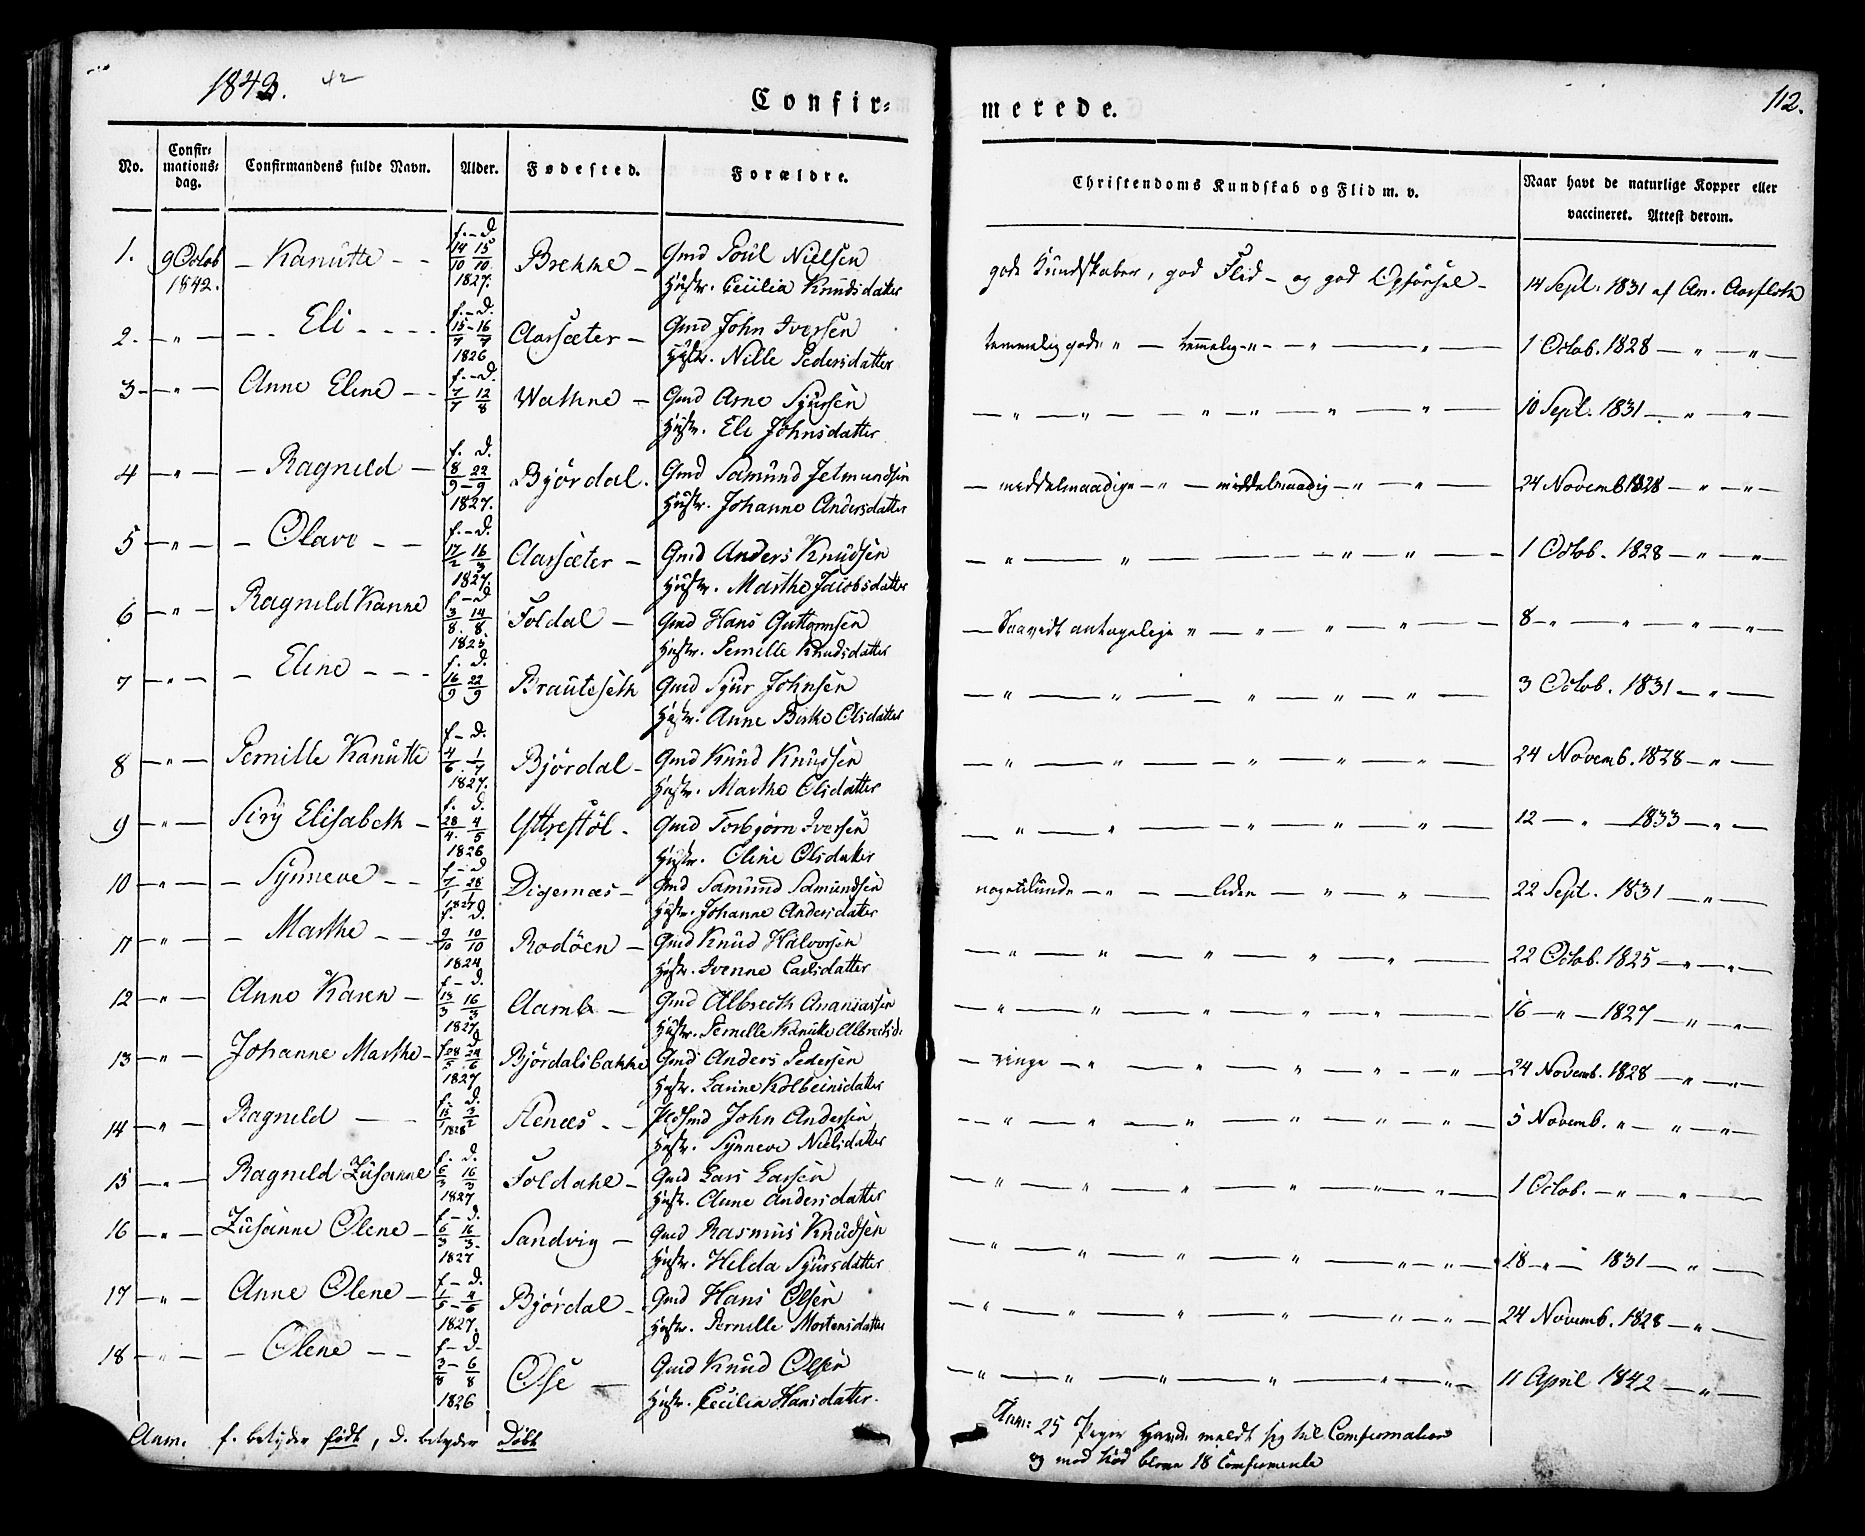 1842. 42
Confir= merede. 112.
No. Confir= mations= dag. Confirmandens fulde Navn. Alder. Fødested. Forældre. Christendoms Kundskab og Flid m. v. Naar havt de naturlige Kopper eller vaccineret. Attest derom.
1. 9 Octob 1842. – Kanutte – – f. – d. 14/10 15/10 1827. Brekke – Gmd Poul Nielsen Hustr. Cecilia Knudsdatter gode Kundskaber, god Flid – og god Opførsel – 14 Sept. 1831 af Am. Aarflot
2. – " – – – Eli – – – – f. – d. 15/7 – 16/7 1826 Aarsæter – Gmd John Iversen Hustr. Nille Pedersdatter temmelig gode " – temelig – " – – " – " – 1 Octob. 1828 – " – " –
3 – – " – Anne Eline – – f. – d. 7/7 12/8 Wathne – Gmd Arne Sjursen Hustr. Eli Johnsdatter – " – " – " – " – " – " – 10 Sept. 1831 – " – " –
4 – " – – Ragnild – f. d. 8/9 – 22/9 1827. Bjørdal. Gmd Samund Jetmundsen Hustr. Johanne Andersdatter – middelmaadige – " – middelmaadig – " – " – 24 Novemb 1828 – " – " –
5 – " – – Olave – – f. – d. 17/2 16/3 1827. Aarsæter – Gmd Anders Knudsen Hustr. Marthe Jacobsdatter – " – " – – " – " – 1 Octob. 1828 – " – " –
6 – " – Ragnild Kanne f – d 3/8. 14/8. 1825. Foldal – Gmd Hans Guttormsen Hustr. Pernille Knudsdatter – Saavidt antagelige " – " – " – " – 8 – " – " – " – " –
7 – " – – Eline – – – f. d. 16/9 22/9 Brauteseth Gmd Sjur Johnsen Hustr. Anne Birthe Olsdatter – " – " – " – " – " – 3 Octob. 1831 – " –
8 – " – Pernille Kanutte f – d. 4/6. 1/7 1827. Bjørdal – Gmd Knud Knudsen Hustr. Marthe Olsdatter – " – " – " – " – " – 24 Novemb. 1828 – " –
9 " – Siry Elisabeth – f. d. 28/4. 4/5 1826 Yttrestøl – Gmd Torbjørn Iversen Hustr. Oline Olsdatter – " – " – " – " – " – 12 – " – 1833 – " –
10 – " – – Synneve – – f – d 7/1 28/1 1827 Digernæs – Gmd Samund Samundsen Hustr. Johanne Andersdatter noget – " – – liden – " – " – 22 Sept. 1831 – " –
11 – " – – Marthe – – – f. d. 9/10 10/10 1824 Rodøen – Gmd Knud Halvorsen Hustr. Ivenne Carlsdatter – " – " – " – " – " – 22 Octob. 1825 – " – " –
12 – " – Anne Karen – f – d. 13/3 16/3 1827 Aamb – Gmd Albrecth Ananiassen Hustr. Pernille Kanutte Albretsd. – " – " – " – " – " – 16 – " – 1827 – " – "
13 – " – Johanne Marthe – f. d 28/5 24/6 1827 Bjørdalsbakke Gmd Anders Pedersen Hustr. Larine Kolbeinsdatter – ringe – " – " – " – " – " – 24 Novemb. 1828 – " – "
14 – " – Ragnild – – f. d. 15/1 3/2 1828 Aenæs – – Gmd John Andersen Hustr. Synneve Nielsdatter – " – " – " – " – " – " – 5 Novemb. " – " – "
15 – " – Ragnild Zusanne f. d. 6/3 16/3 1827 Foldahl – Gmd Lars Larsen Hustr. Anne Andersdatter – " – " – " – " – " – " – 1 Octob. – " – " –
16 – " – Zusanne Olene – f – d. 6/3 16/3. 1827 Sandvig – Gmd Rasmus Knudsen Hustr. Helda Sjursdatter – " – " – " – " – " – " – 18 – " – 1831 – " –
17 – " – Anne Olene – f – d. 1/5 – 4/6 1827. Bjørdal – Gmd Hans Olsen Hustr. Pernille Mortensdatter – " – " – " – " – " – " – 24 Novemb. 1828 – " –
18 – " – – Olene – – f – d – 3/8 – 6/8 1826 Ose – Gmd Knud Olsen Hustr. Cecilia Hansdatter. – " – " – " – " – " – " – 11 April 1842 – " –
Anm. f. betyder født, d. betyder Døbt
Anm: 25 Piger havde meldt sig til Comfirmation
og med hød bleve 18 Comfirmerte